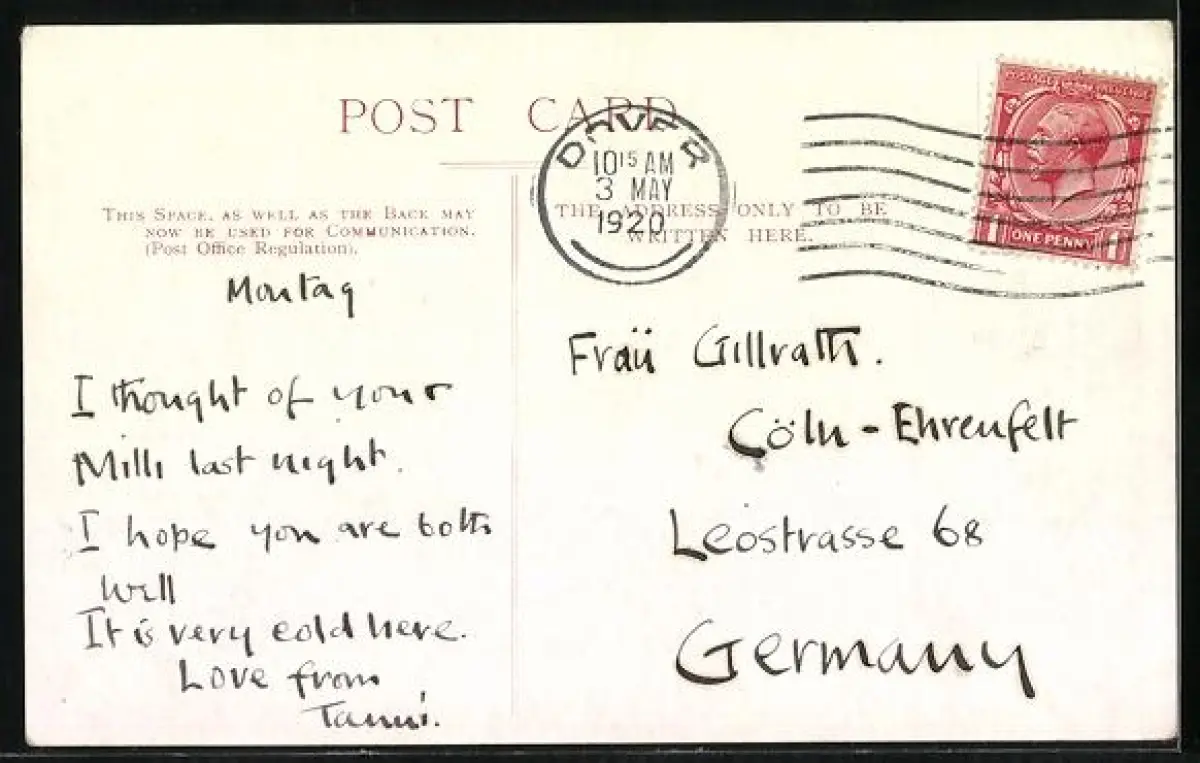 POST CARD
DOVER
10 15 AM
3 MAY
1920
POSTAGE REVENUE
1 ONE PENNY 1
THIS SPACE, AS WELL AS THE BACK MAY
NOW BE USED FOR COMMUNICATION.
(Post Office Regulation).
THE ADDRESS ONLY TO BE
WRITTEN HERE.
Montag
I thought of your
Mill last night.
I hope you are both
well
It is very cold here.
Love from
Tanni.
Fraü Gillrath.
Cöln - Ehrenfelt
Leostrasse 68
Germany